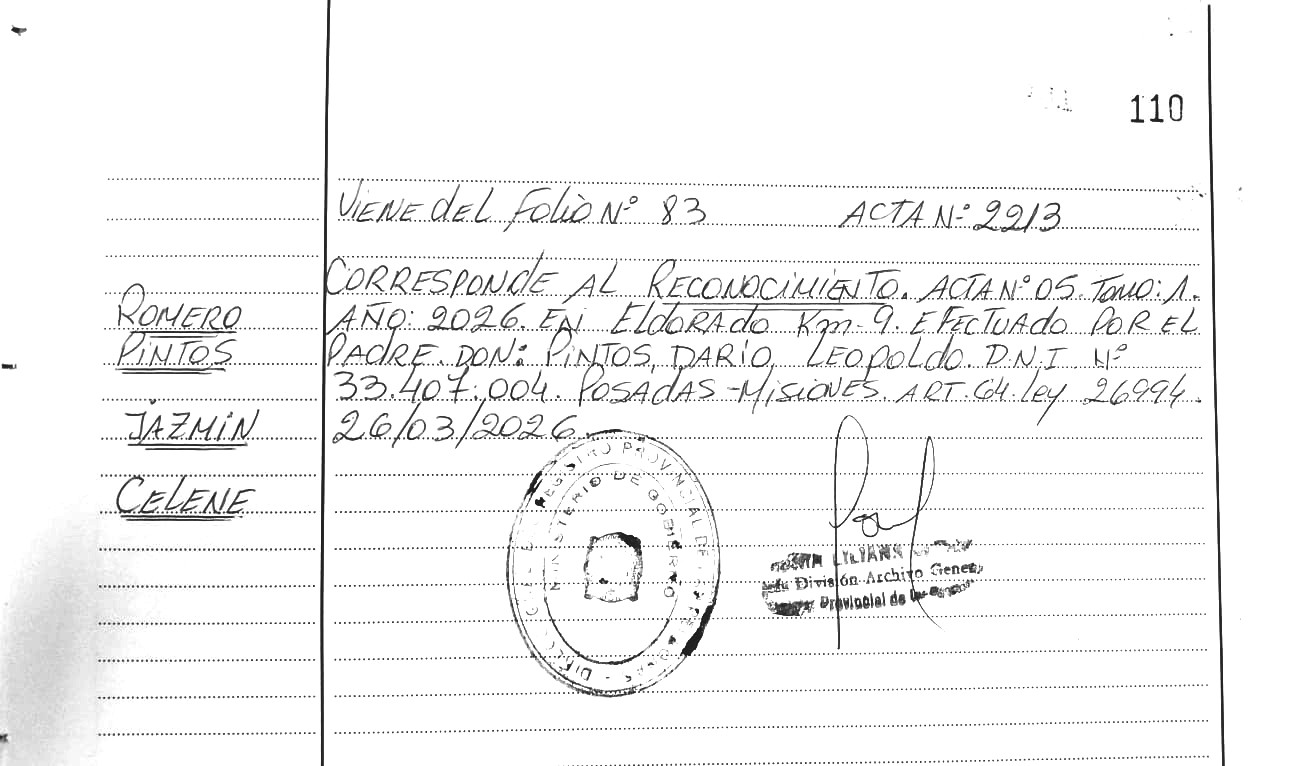 110
VIENE DEL FOLIO Nº 83 ACTA Nº 2213
CORRESPONDE AL RECONOCIMIENTO. ACTA Nº 05. TOMO: 1.
AÑO: 2026. EN ELDORADO Km-9. EFECTUADO POR EL
PADRE. DON: PINTOS, DARIO, LEOPOLDO. D.N.I Nº
33.407.004. POSADAS-MISIONES. ART. 64. Ley 26994.
26/03/2026.
ROMERO
PINTOS
JAZMIN
CELENE
REGISTRO PROVINCIAL DE
MINISTERIO DE GOBIERNO
LILIANA
División Archivo
Provincial de